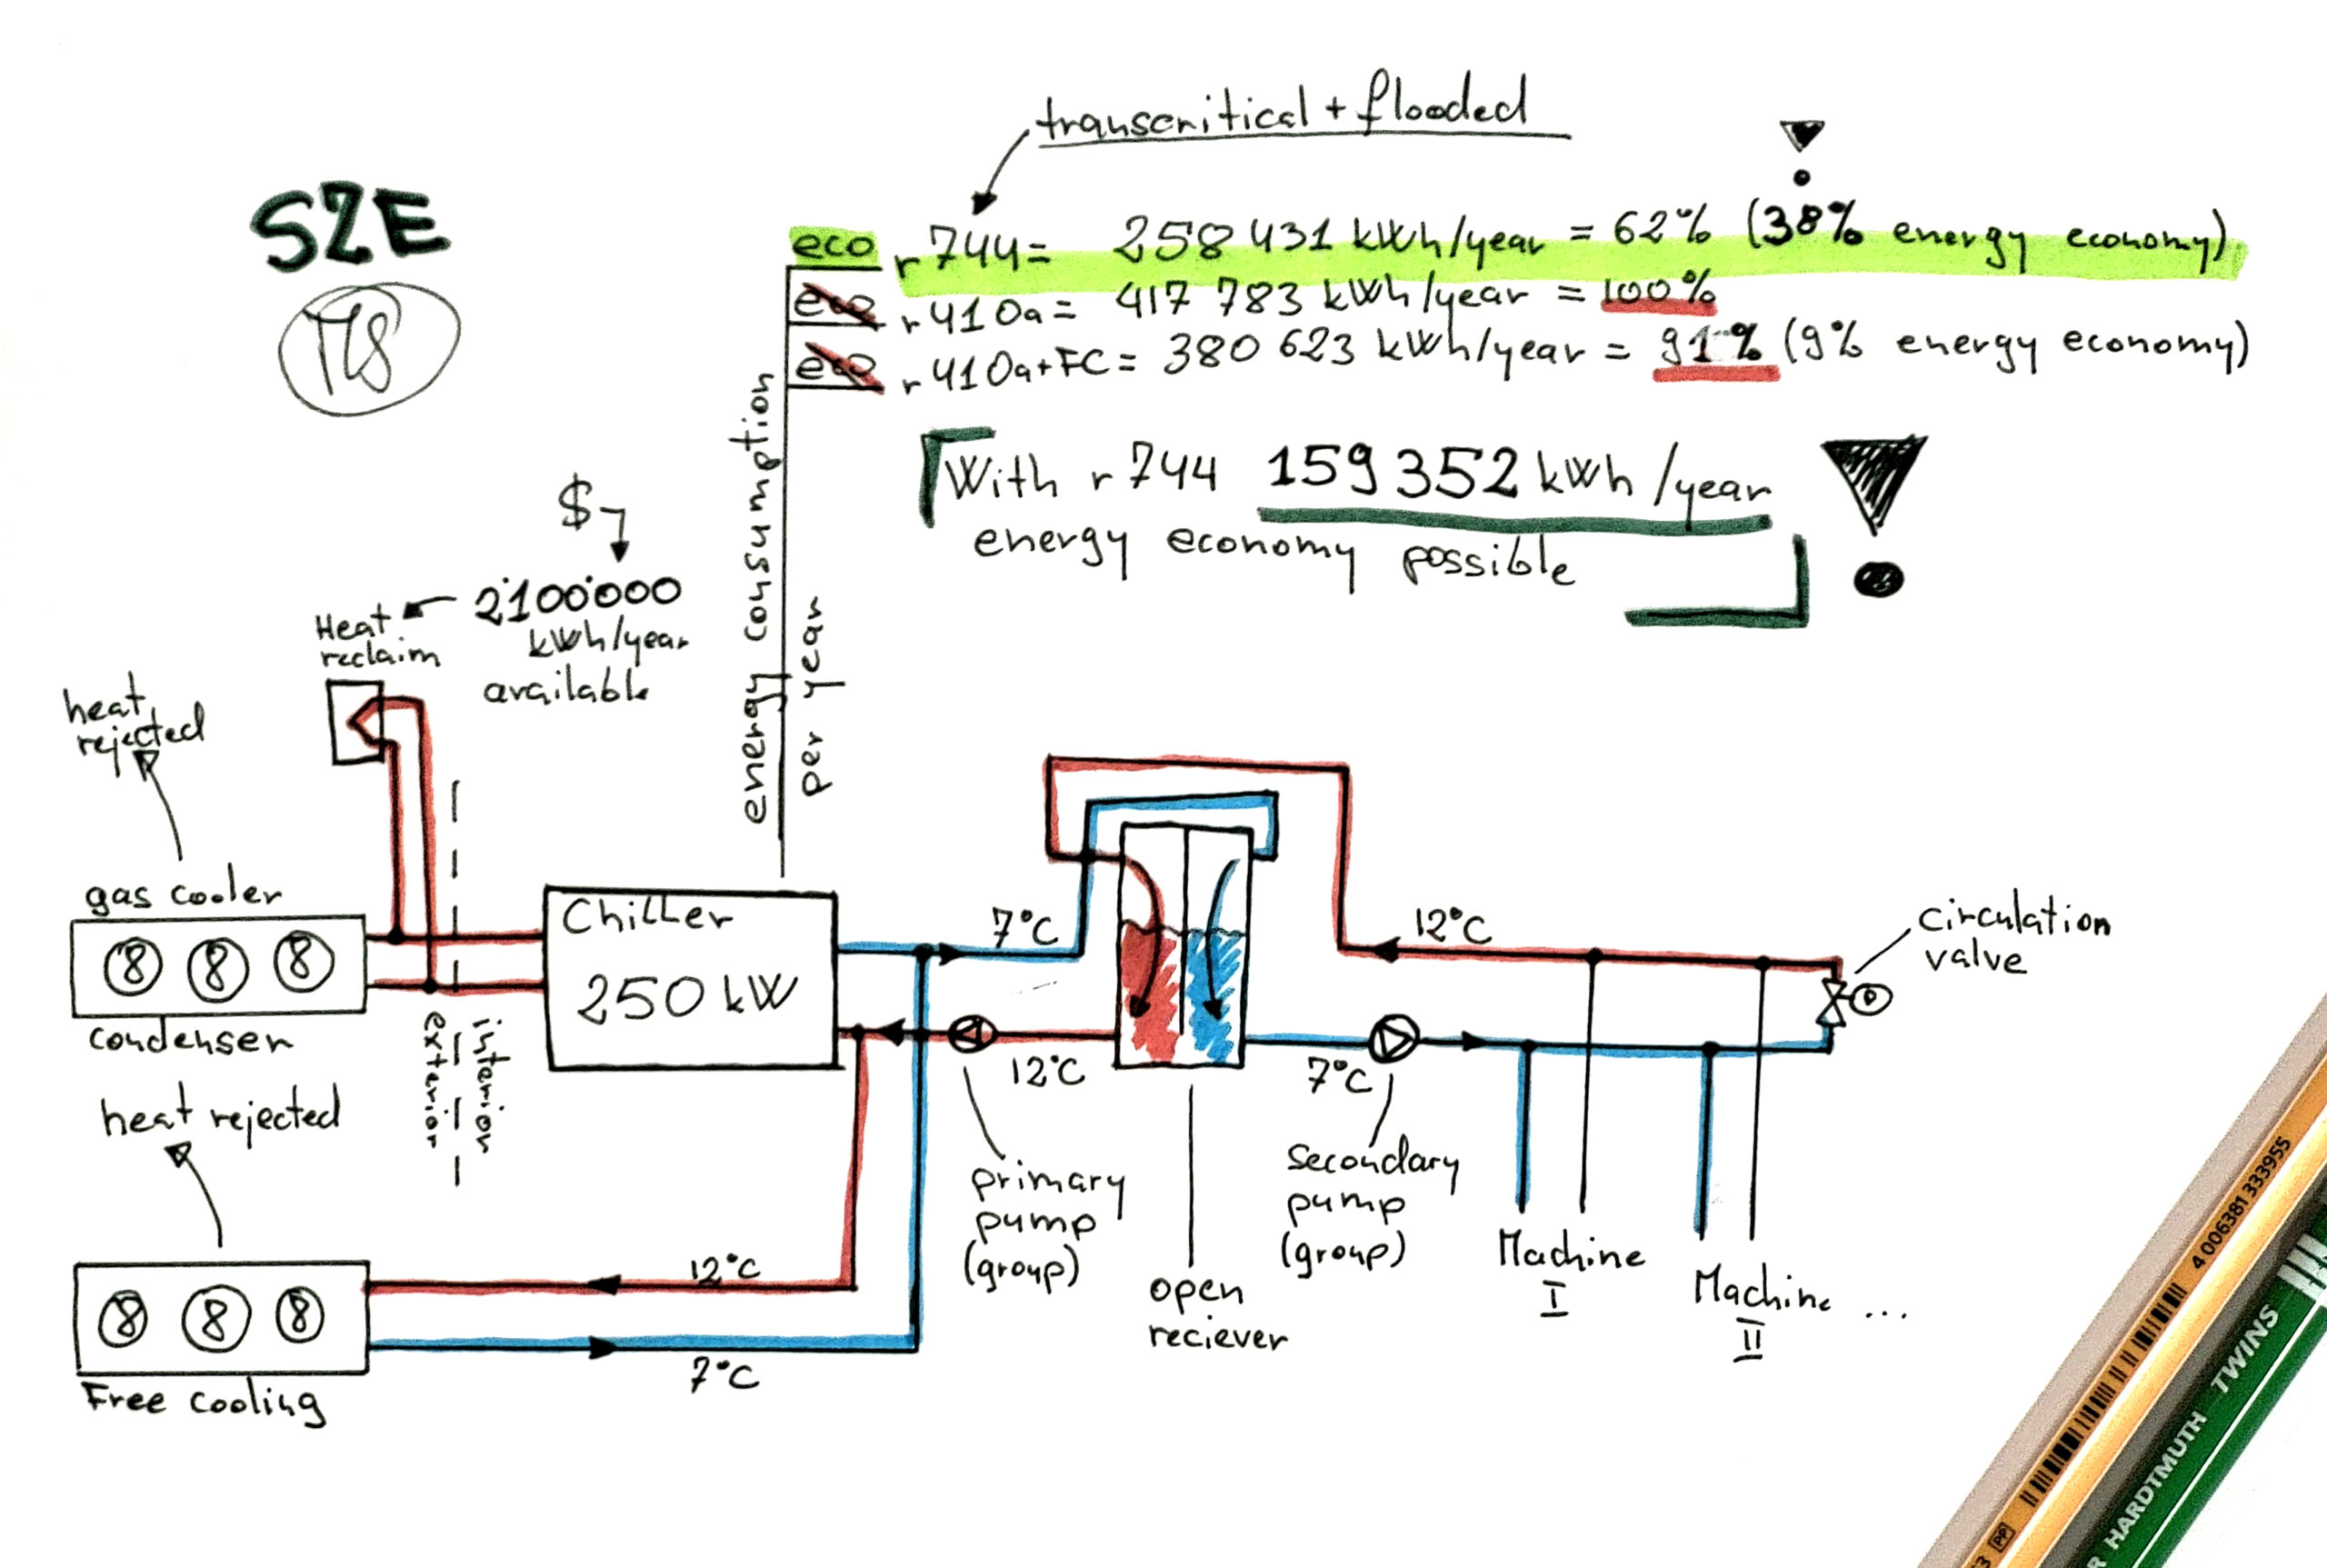 transcritical + flooded
S2E
eco r744 = 258 431 kWh/year = 62% (38% energy economy)
eco r410a = 417 783 kWh/year = 100%
eco r410a+FC = 380 623 kWh/year = 91% (9% energy economy)
With r744 159 352 kWh/year
energy economy possible
energy consumption
per year
$
2100000
kWh/year
available
Heat
reclaim
heat
rejected
gas cooler
condenser
exterior
interior
Chiller
250 kW
7°C
12°C
12°C
7°C
circulation
valve
primary
pump
(group)
open
reciever
secondary
pump
(group)
Machine
I
Machine ...
II
heat rejected
12°C
7°C
Free cooling
4 006381 333955
PP
HARDTMUTH TWINS